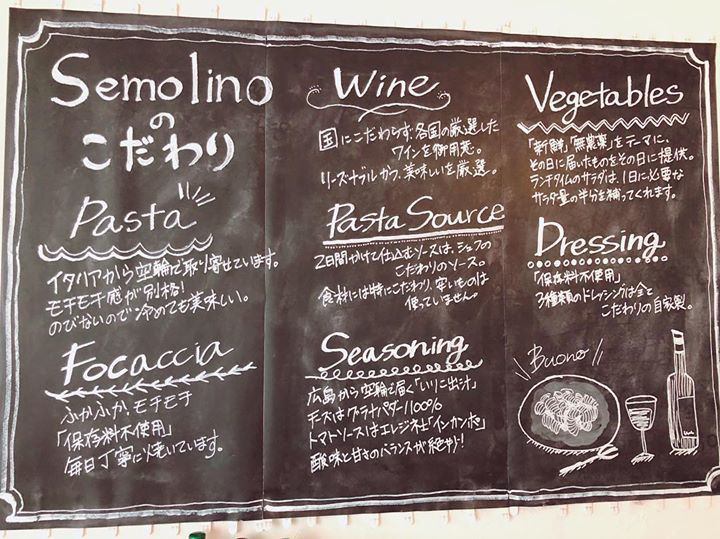 Semolino
の
こだわり
Pasta
イタリアから空輸で取り寄せています。
モチモチ感が別格!
のびないので冷めても美味しい。
Focaccia
ふかふか、モチモチ
「保存料不使用」
毎日丁寧に焼いています。
Wine
国にこだわらず各国の厳選した
ワインを御用意。
リーズナブルかつ、美味しいを厳選。
Pasta Source
2日間かけて仕込むソースは、シェフの
こだわりのソース。
食材には特にこだわり、安いものは
使っていません。
Seasoning
広島から空輸で届く「いりこ出汁」
チーズはグラナパダーノ100%
トマトソースはエレジネ社「インカンポ」
酸味と甘さのバランスが絶妙!
Vegetables
「新鮮」「無農薬」をテーマに、
その日に届いたものをその日に提供。
ランチタイムのサラダは、1日に必要な
サラダ量の半分を補ってくれます。
Dressing
「保存料不使用」
3種類のドレッシングは全て
こだわりの自家製。
Buono